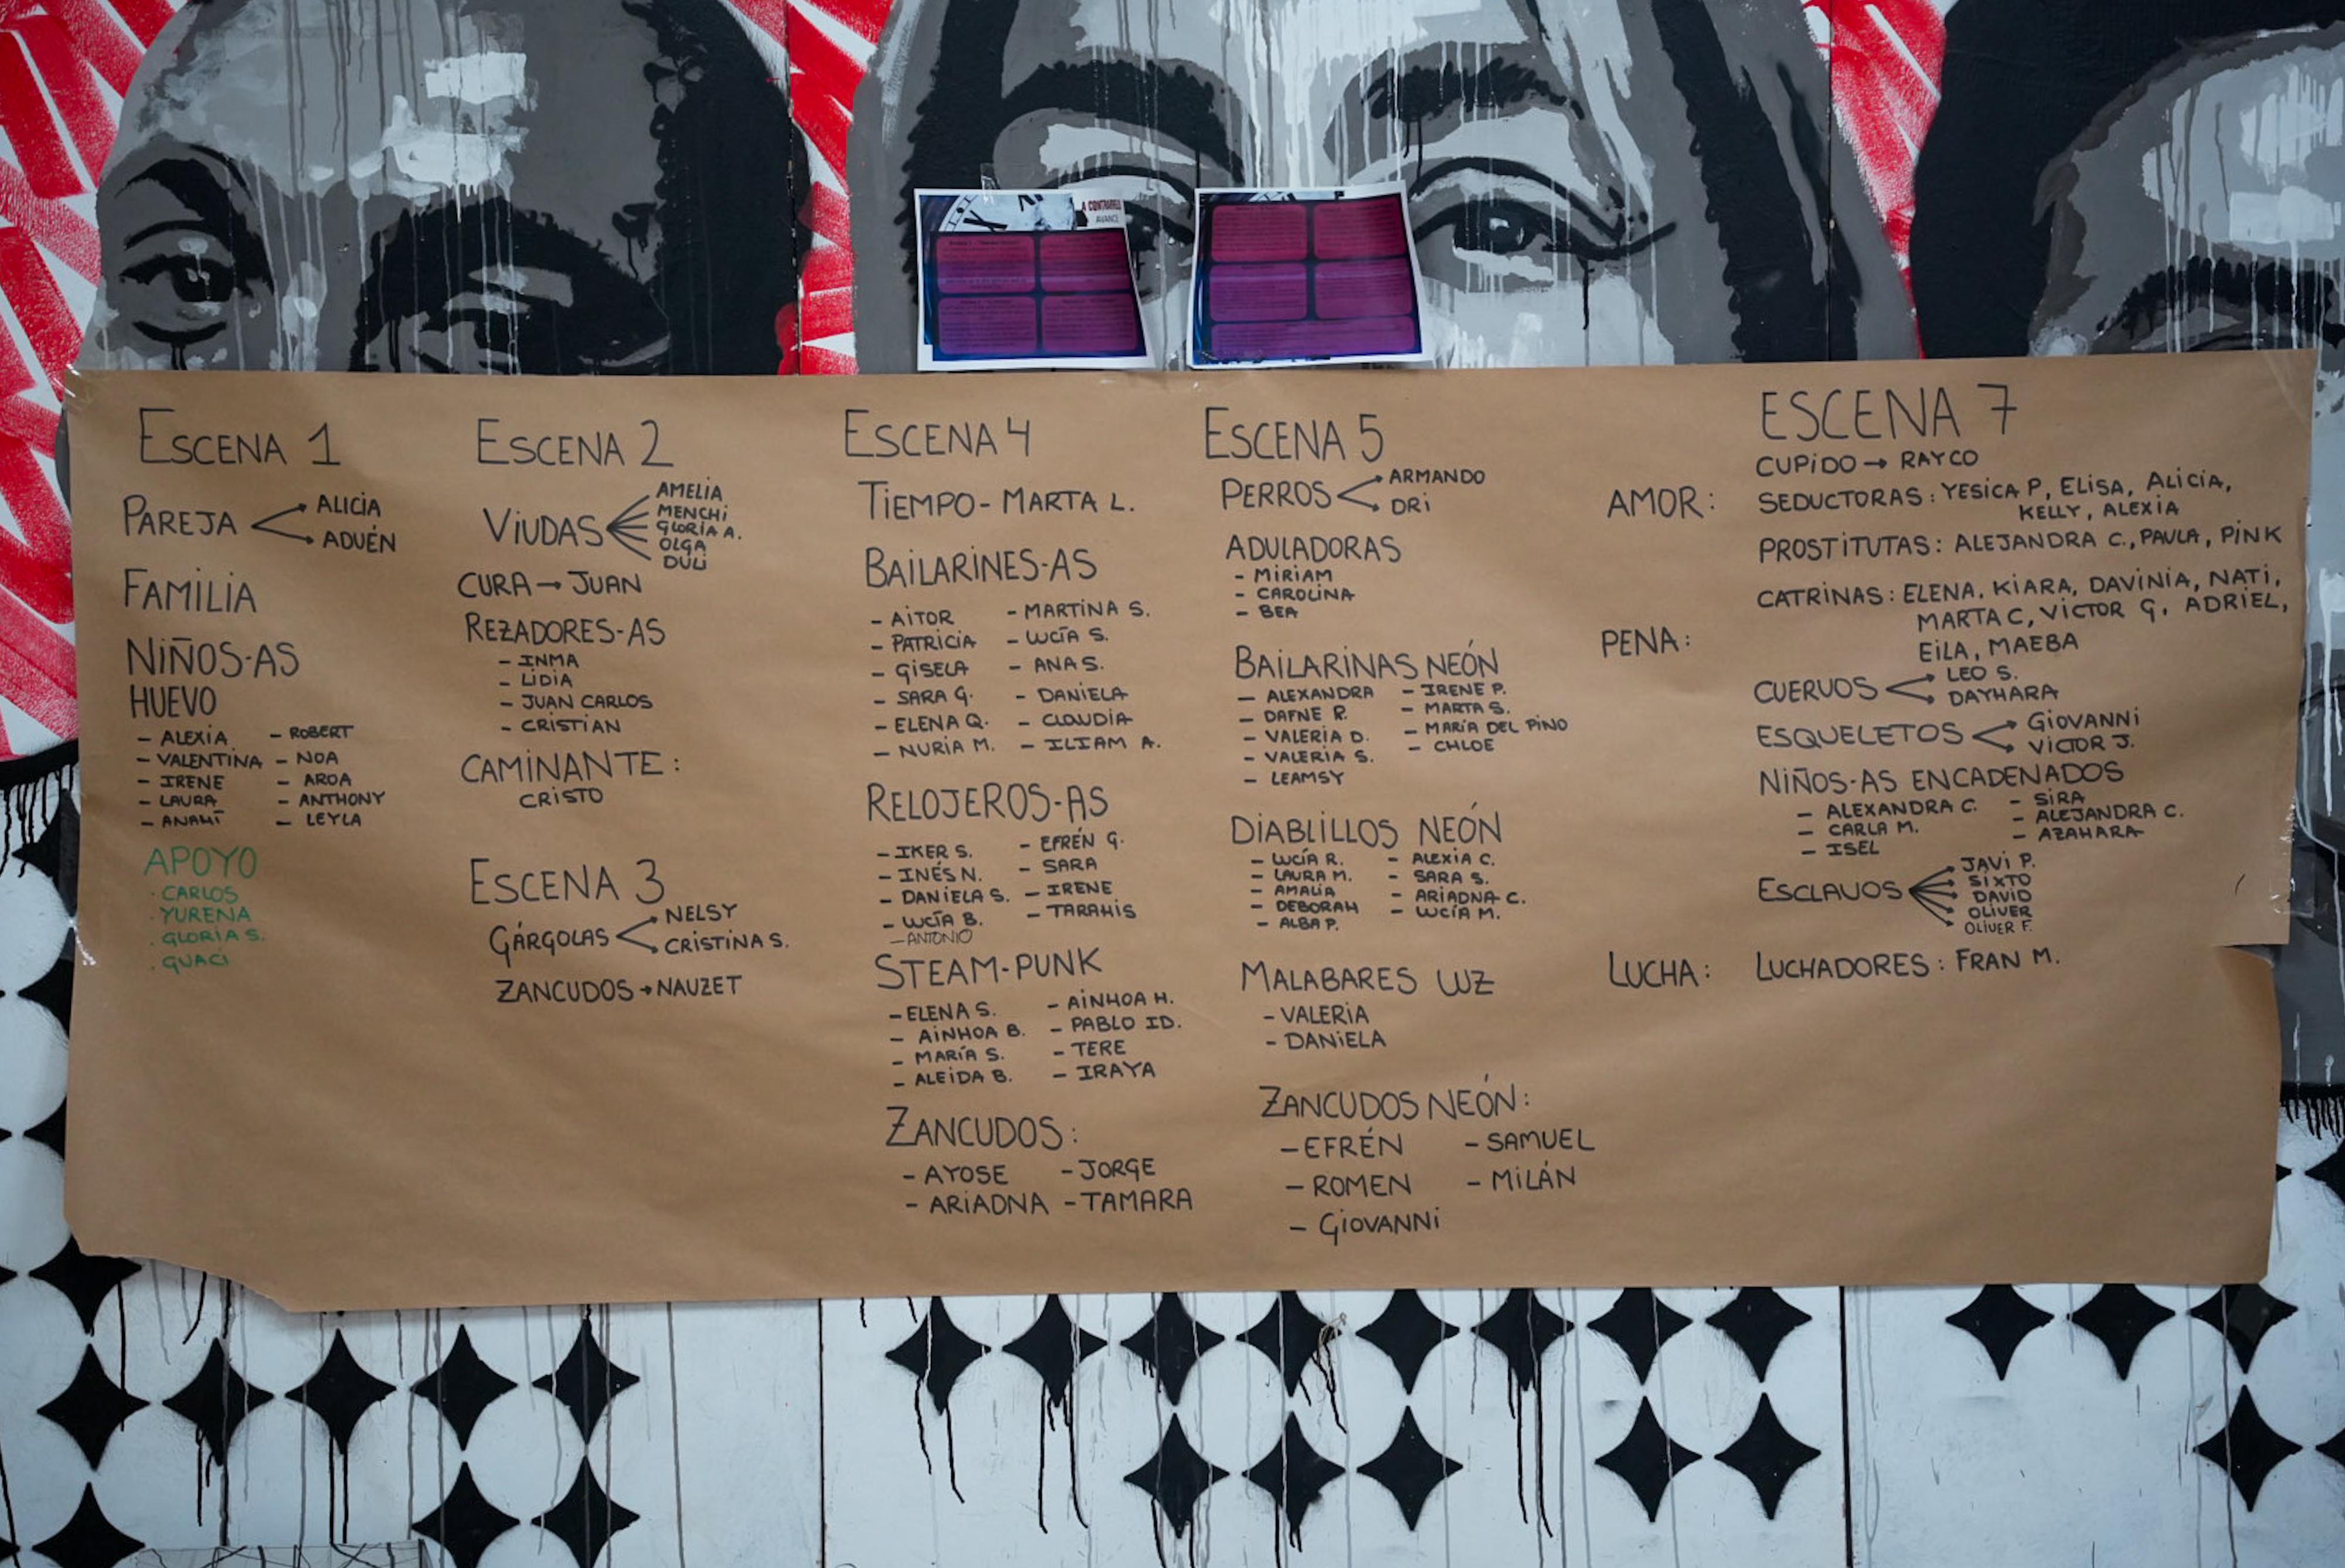 A CONTRARRELOJ
AVANCE
ESCENA 1
PAREJA
ALICIA
ADUÉN
FAMILIA
NIÑOS-AS
HUEVO
- ALEXIA
- VALENTINA
- IRENE
- LAURA
- ANAHÍ
- ROBERT
- NOA
- AROA
- ANTHONY
- LEYLA
APOYO
· CARLOS
· YURENA
· GLORIA S.
· GUACI
ESCENA 2
VIUDAS
AMELIA
MENCHI
GLORIA A.
OLGA
DULI
CURA → JUAN
REZADORES-AS
- INMA
- LIDIA
- JUAN CARLOS
- CRISTIAN
CAMINANTE:
CRISTO
ESCENA 3
GÁRGOLAS
NELSY
CRISTINA S.
ZANCUDOS → NAUZET
ESCENA 4
TIEMPO - MARTA L.
BAILARINES-AS
- AITOR
- PATRICIA
- GISELA
- SARA G.
- ELENA Q.
- NURIA M.
- MARTINA S.
- LUCÍA S.
- ANA S.
- DANIELA
- CLAUDIA
- ILIAM A.
RELOJEROS-AS
- IKER S.
- INÉS N.
- DANIELA S.
- LUCÍA B.
- ANTONIO
- EFRÉN G.
- SARA
- IRENE
- TARAHIS
STEAM-PUNK
- ELENA S.
- AINHOA B.
- MARÍA S.
- ALEIDA B.
- AINHOA H.
- PABLO ID.
- TERE
- IRAYA
ZANCUDOS:
- AYOSE
- ARIADNA
- JORGE
- TAMARA
ESCENA 5
PERROS
ARMANDO
DRI
ADULADORAS
- MIRIAM
- CAROLINA
- BEA
BAILARINAS NEÓN
- ALEXANDRA
- DAFNE R.
- VALERIA D.
- VALERIA S.
- LEAMSY
- IRENE P.
- MARTA S.
- MARÍA DEL PINO
- CHLOE
DIABLILLOS NEÓN
- LUCÍA R.
- LAURA M.
- AMALIA
- DEBORAH
- ALBA P.
- ALEXIA C.
- SARA S.
- ARIADNA C.
- LUCÍA M.
MALABARES LUZ
- VALERIA
- DANIELA
ZANCUDOS NEÓN:
- EFRÉN
- ROMEN
- GIOVANNI
- SAMUEL
- MILÁN
ESCENA 7
AMOR:
CUPIDO → RAYCO
SEDUCTORAS: YESICA P, ELISA, ALICIA,
KELLY, ALEXIA
PROSTITUTAS: ALEJANDRA C., PAULA, PINK
PENA:
CATRINAS: ELENA. KIARA, DAVINIA, NATI,
MARTA C, VICTOR G. ADRIEL,
EILA, MAEBA
CUERVOS
LEO S.
DAYHARA
ESQUELETOS
GIOVANNI
VICTOR J.
NIÑOS-AS ENCADENADOS
- ALEXANDRA C.
- CARLA M.
- ISEL
- SIRA
- ALEJANDRA C.
- AZAHARA
ESCLAVOS
JAVI P.
SIXTO
DAVID
OLIVER
OLIVER F.
LUCHA:
LUCHADORES: FRAN M.